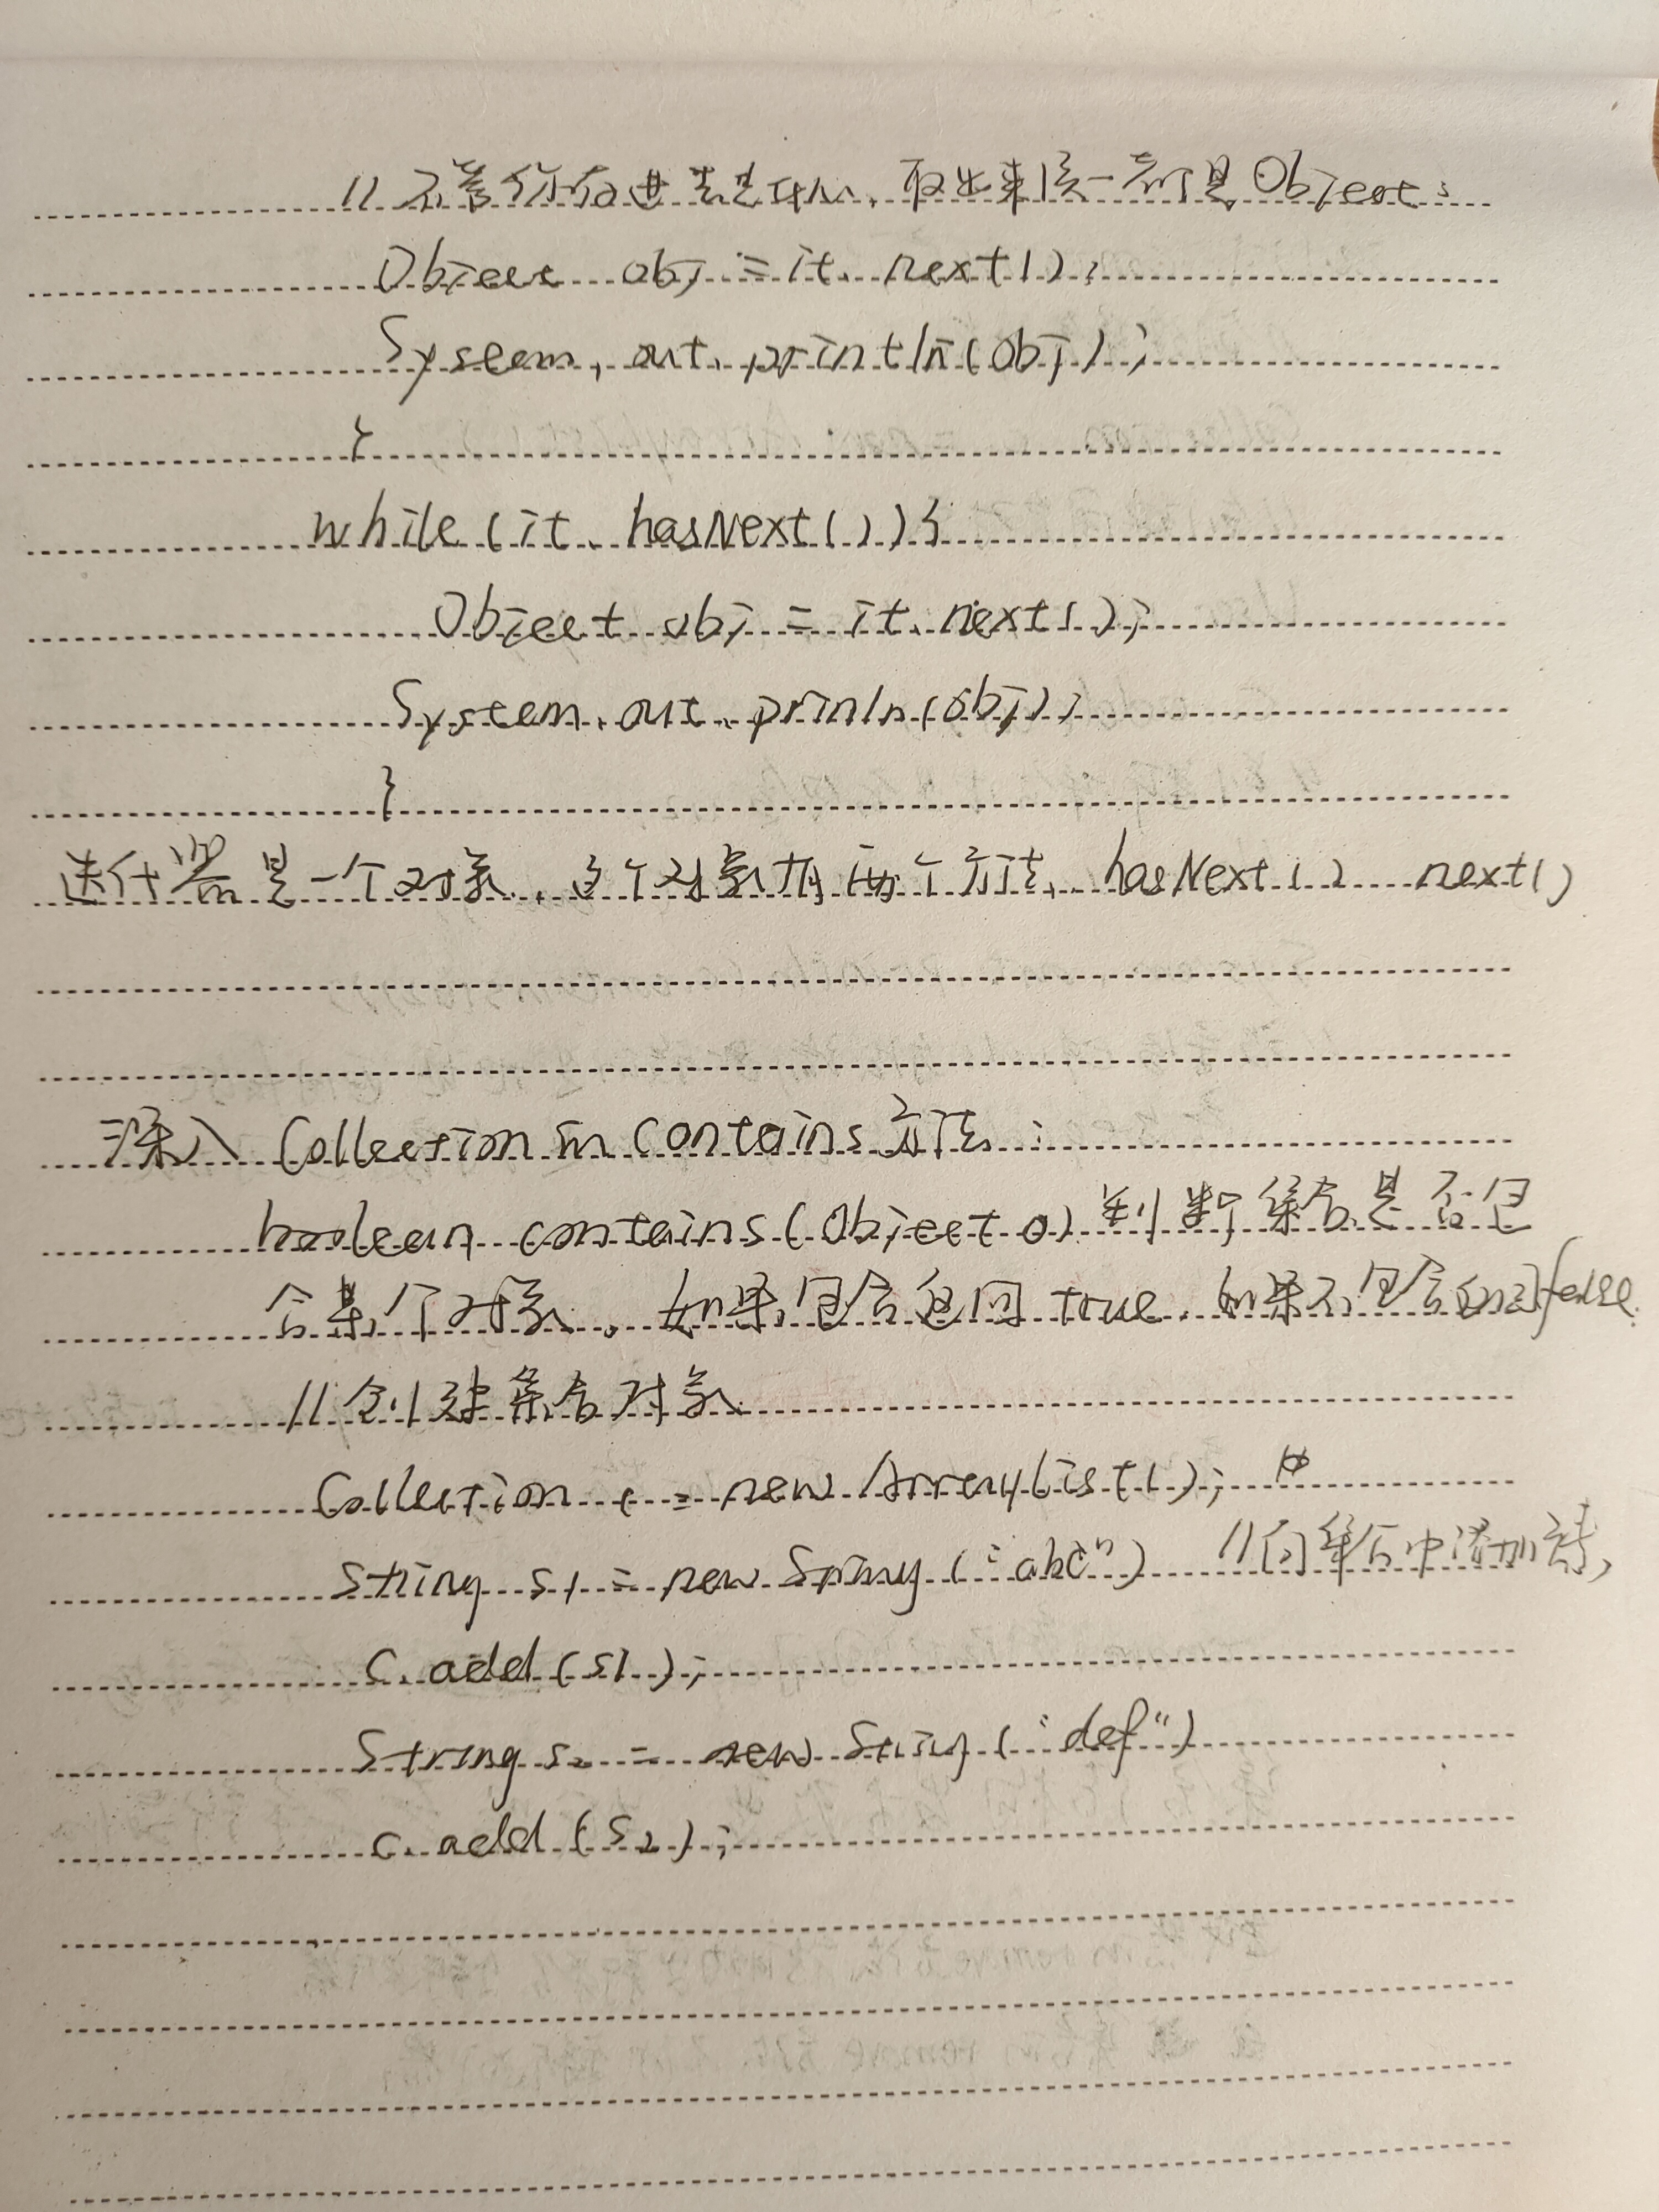 // 不管你存进去是什么,取出来统一都是Object;
Object obj = it.next();
System.out.println(obj);
}
while(it.hasNext()){
Object obj = it.next();
System.out.prinln(obj);
}
迭代器是一个对象,这个对象有两个方法,hasNext() next()
深入Collection的contains方法:
boolean contains(Object o) 判断集合是否包
含某个对象。如果包含返回true,如果不包含返回false.
//创建集合对象
Collection c = new ArrayList();
String s1 = new String("abc") //向集合中添加元素,
c.add(s1);
String s2 = new String("def")
c.add(s2);